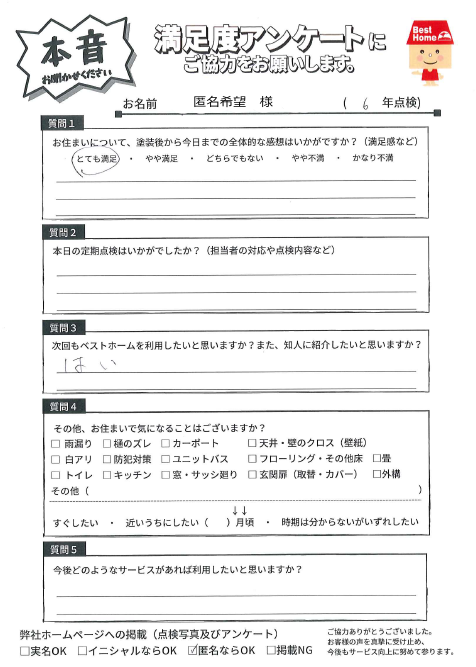 本音
お聞かせください
満足度アンケートに
ご協力をお願いします。
Best Home
お名前 匿名希望 様 ( 6 年点検)
質問1
お住まいについて、塗装後から今日までの全体的な感想はいかがですか?(満足感など)
とても満足 ・ やや満足 ・ どちらでもない ・ やや不満 ・ かなり不満
質問2
本日の定期点検はいかがでしたか?(担当者の対応や点検内容など)
質問3
次回もベストホームを利用したいと思いますか?また、知人に紹介したいと思いますか?
はい
質問4
その他、お住まいで気になることはございますか?
□ 雨漏り □ 樋のズレ □ カーポート □ 天井・壁のクロス(壁紙)
□ 白アリ □ 防犯対策 □ ユニットバス □ フローリング・その他床 □畳
□ トイレ □ キッチン □ 窓・サッシ廻り □ 玄関扉(取替・カバー) □外構
その他( )
↓↓
すぐしたい ・ 近いうちにしたい( )月頃 ・ 時期は分からないがいずれしたい
質問5
今後どのようなサービスがあれば利用したいと思いますか?
弊社ホームページへの掲載(点検写真及びアンケート)
□実名OK □イニシャルならOK ☑匿名ならOK □掲載NG
ご協力ありがとうございました。
お客様の声を真摯に受け止め、
今後もサービス向上に努めて参ります。